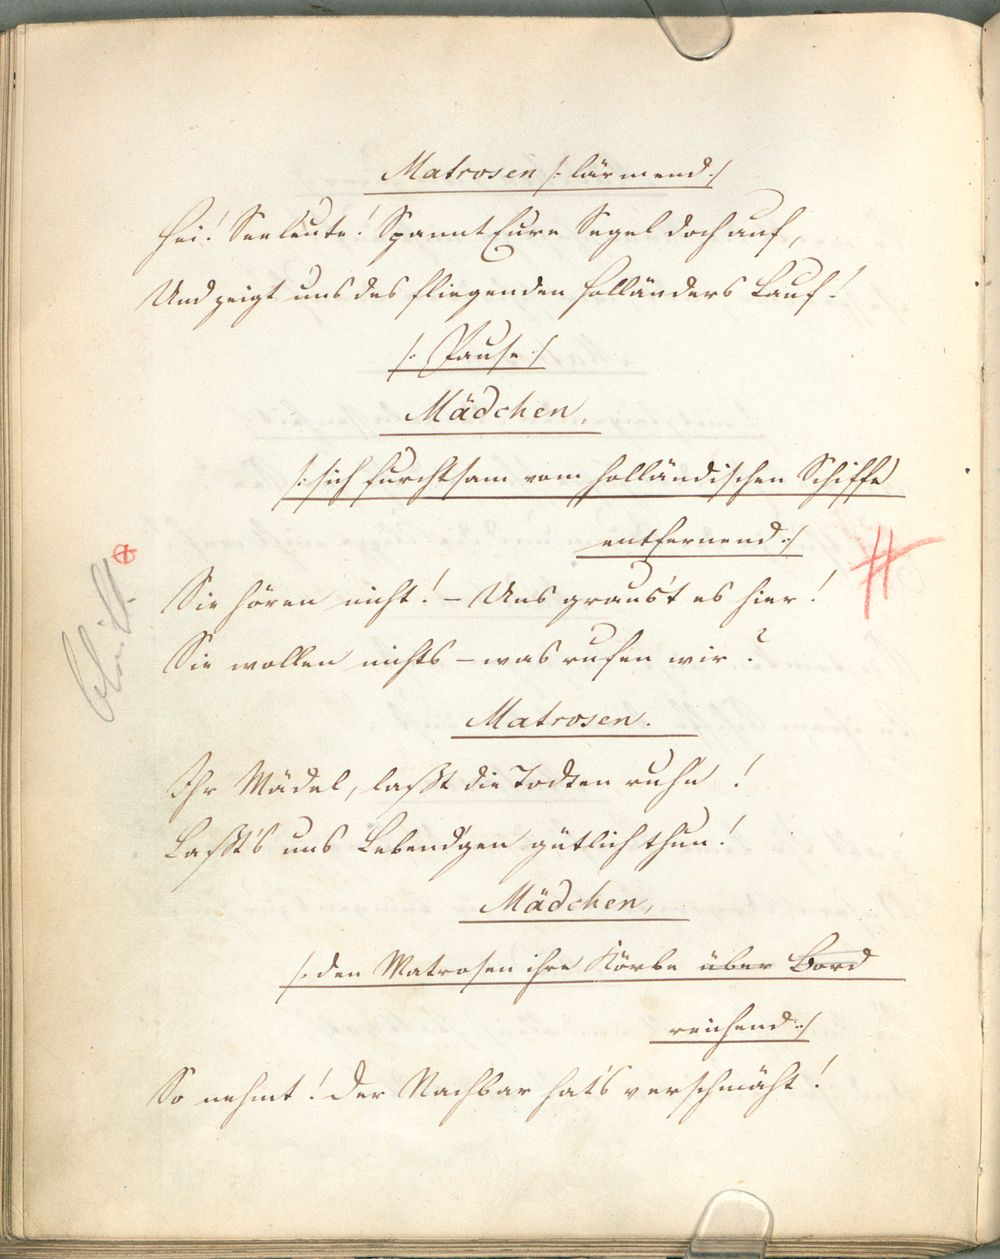 Matrosen /: lärmend :/
Hei! Seeleute! Spannt Eure Segel doch auf,
Und zeigt uns des fliegenden Holländers Lauf!
/: Pause :/
Mädchen,
/: sich furchtsam vom holländischen Schiffe
entfernend :/
Sie hören nicht! – Uns graus't es hier!
Sie wollen nichts – was rufen wir?
Matrosen.
Ihr Mädel, laßt die Todten ruh'n!
Laßt's uns Lebend'gen gütlich thun!
Mädchen,
/: den Matrosen ihre Körbe über Bord
reichend :/
So nehmt! der Nachbar hat's verschmäht!